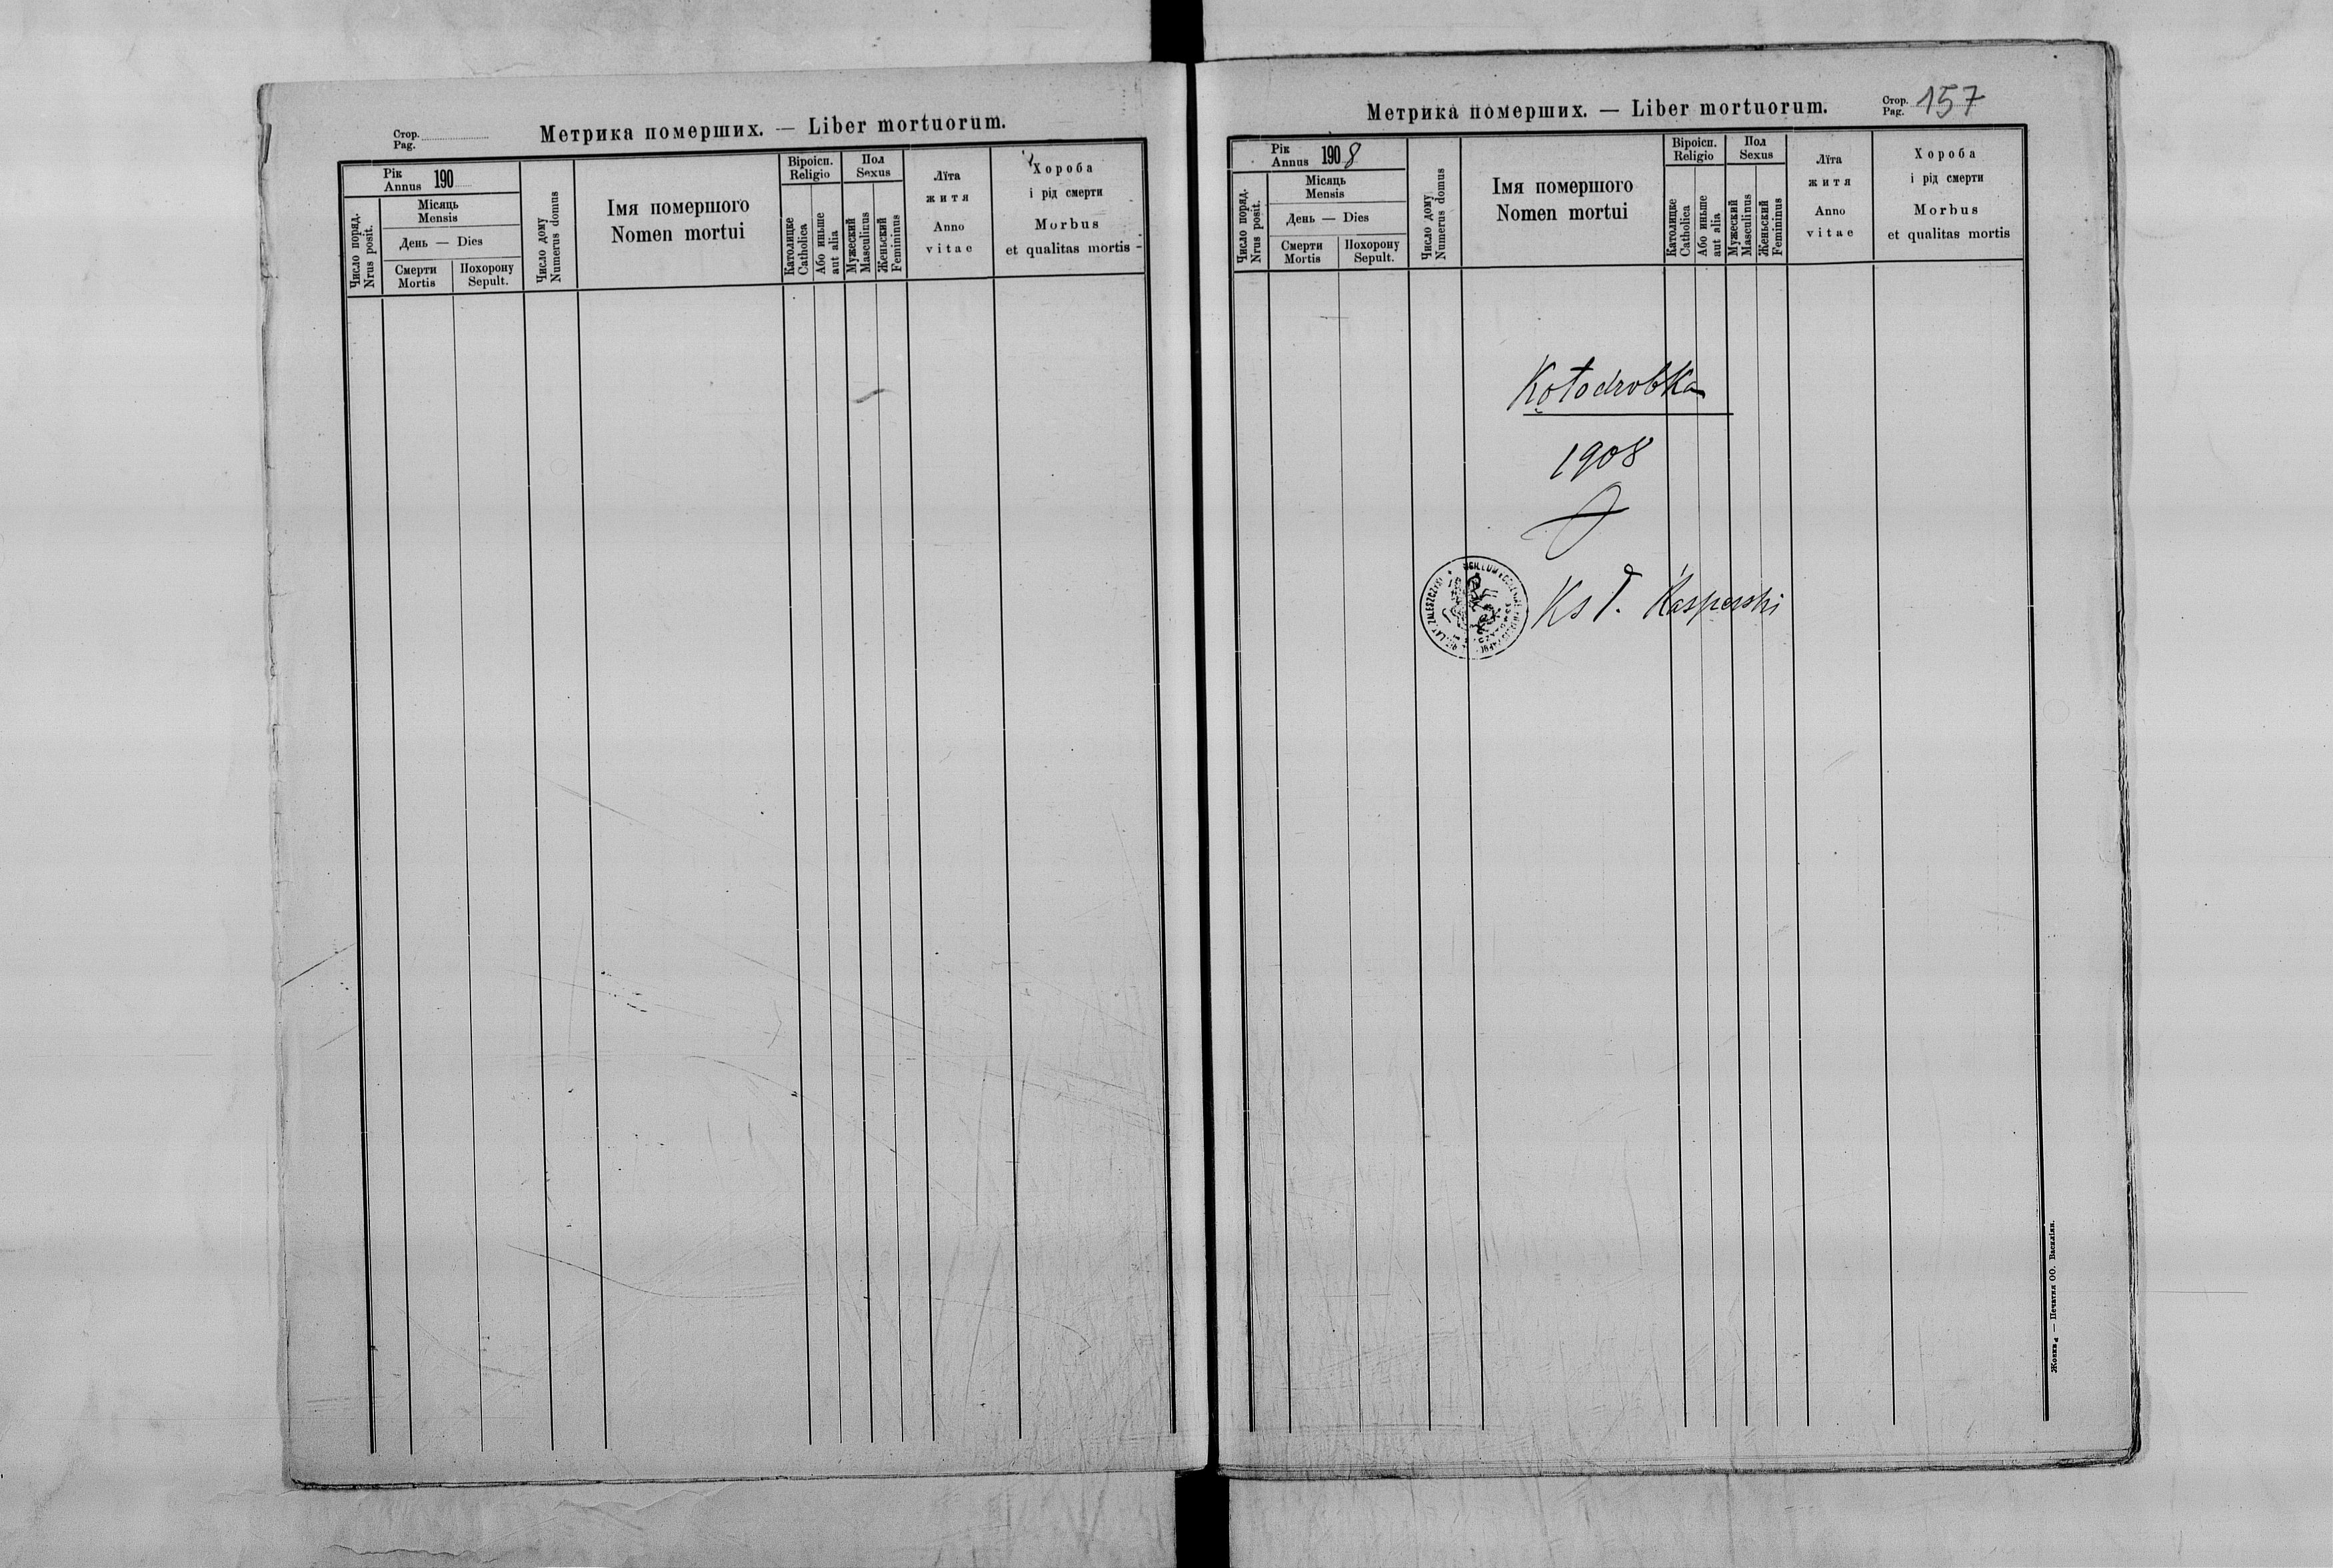 Стор.
Pag.
Метрика померших. — Liber mortuorum.
Рік
Annus 190
Число поряд.
Nrus posit.
Місяць
Mensis
День — Dies
Смерти
Mortis
Похорону
Sepult.
Число дому
Numerus domus
Імя помершого
Nomen mortui
Віроісп.
Religio
Католицке
Catholica
Або иньше
aut alia
Пол
Sexus
Мужеский
Masculinus
Женьский
Femininus
Лїта
житя
Anno
vitae
Хороба
і рід смерти
Morbus
et qualitas mortis
Метрика померших. — Liber mortuorum.
Стор.
Pag. 157
Рік
Annus 1908
Число поряд.
Nrus posit.
Місяць
Mensis
День — Dies
Смерти
Mortis
Похорону
Sepult.
Число дому
Numerus domus
Імя помершого
Nomen mortui
Віроісп.
Religio
Католицке
Catholica
Або иньше
aut alia
Пол
Sexus
Мужеский
Masculinus
Женьский
Femininus
Лїта
житя
Anno
vitae
Хороба
і рід смерти
Morbus
et qualitas mortis
Kołodrobka
1908
Ks Kasperski
Жовква — Печатня ОО. Василіян.